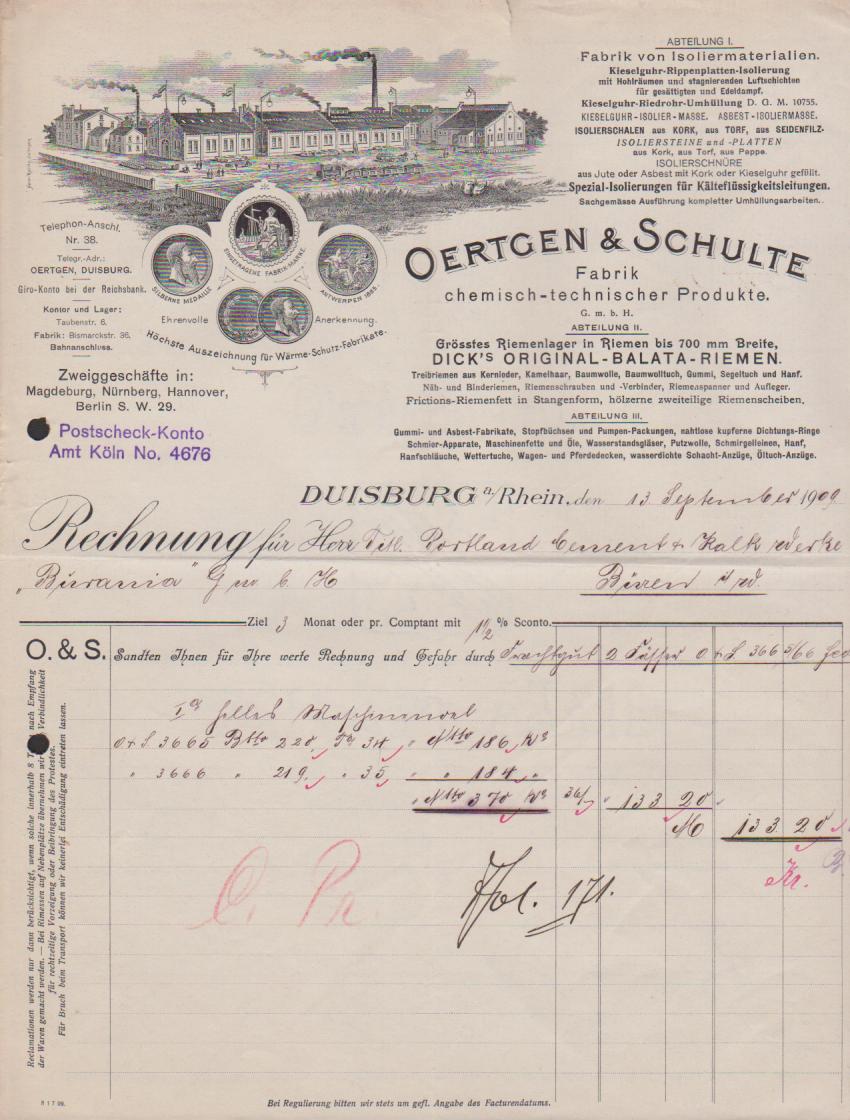 ABTEILUNG I.
Fabrik von Isoliermaterialien.
Kieselguhr-Rippenplatten-Isolierung
mit Hohlräumen und stagnierenden Luftschichten
für gesättigten und Edeldampf.
Kieselguhr-Riedrohr-Umhüllung D. G. M. 10755.
KIESELGUHR-ISOLIER-MASSE. ASBEST-ISOLIERMASSE.
ISOLIERSCHALEN aus KORK, aus TORF, aus SEIDENFILZ.
ISOLIERSTEINE und -PLATTEN
aus Kork, aus Torf, aus Pappe.
ISOLIERSCHNÜRE
aus Jute oder Asbest mit Kork oder Kieselguhr gefüllt.
Spezial-Isolierungen für Kälteflüssigkeitsleitungen.
Sachgemässe Ausführung kompletter Umhüllungsarbeiten.
Telephon-Anschl.
Nr. 38.
Telegr.-Adr.:
OERTGEN, DUISBURG.
Giro-Konto bei der Reichsbank.
Kontor und Lager:
Taubenstr. 6.
Fabrik: Bismarckstr. 36.
Bahnanschluss.
EINGETRAGENE FABRIK-MARKE.
SILBERNE MEDAILLE
ANTWERPEN 1885.
Ehrenvolle Anerkennung.
Höchste Auszeichnung für Wärme-Schutz-Fabrikate.
Zweiggeschäfte in:
Magdeburg, Nürnberg, Hannover,
Berlin S. W. 29.
Postscheck-Konto
Amt Köln No. 4676
OERTGEN & SCHULTE
Fabrik
chemisch-technischer Produkte.
G. m. b. H.
ABTEILUNG II.
Grösstes Riemenlager in Riemen bis 700 mm Breite,
DICK'S ORIGINAL-BALATA-RIEMEN.
Treibriemen aus Kernleder, Kamelhaar, Baumwolle, Baumwolltuch, Gummi, Segeltuch und Hanf.
Näh- und Binderiemen, Riemenschrauben und -Verbinder, Riemenspanner und Aufleger.
Frictions-Riemenfett in Stangenform, hölzerne zweiteilige Riemenscheiben.
ABTEILUNG III.
Gummi- und Asbest-Fabrikate, Stopfbüchsen und Pumpen-Packungen, nahtlose kupferne Dichtungs-Ringe
Schmier-Apparate, Maschinenfette und Öle, Wasserstandsgläser, Putzwolle, Schmirgelleinen, Hanf,
Hanfschläuche, Wettertuche, Wagen- und Pferdedecken, wasserdichte Schacht-Anzüge, Öltuch-Anzüge.
DUISBURG a/Rhein, den 13. September 1909.
Rechnung für Herr Titl. Portland Cement & Kalk Werke
"Burania" G m b. H Büren i/W.
Ziel 3 Monat oder pr. Comptant mit 1 1/2 % Sconto.
O. & S. Sandten Ihnen für Ihre werte Rechnung und Gefahr durch Frachtgut 2 Fässer O & S. 3665/66
Ia helles Maschinenoel
O & S. 3665 Btto 220, Ta 34 " Ntto 186, Ko
" 3666 " 219, " 35, " " 184, "
" Ntto 370 Ko 36/ " 133 20 "
M 133 20
C. Pr.
Fol. 171.
Kr.
Reclamationen werden nur dann berücksichtigt, wenn solche innerhalb 8 nach Empfang
der Waren gemacht werden. — Bei Rimessen auf Nebenplätze übernehmen wir Verbindlichkeit
für rechtzeitige Vorzeigung oder Beibringung des Protestes.
Für Bruch beim Transport können wir keinerlei Entschädigung eintreten lassen.
8 1 7 09.
Bei Regulierung bitten wir stets um gefl. Angabe des Facturendatums.